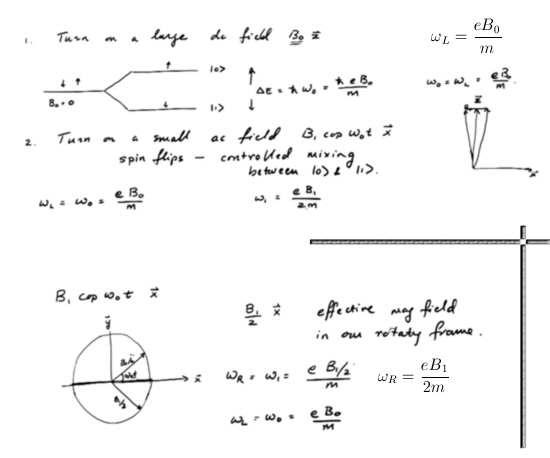 1. Turn on a large dc field B₀ z⃗
ω_L = eB₀/m
↓ ↑
B₀ = 0
↑ |0>
↓ |1>
ΔE = ħ ω₀ = ħ e B₀/m
ω₀ = ω_L = eB₀/m.
z⃗
x⃗
2. Turn on a small ac field B₁ cos ω₀t x⃗
spin flips – controlled mixing
between |0> & |1>.
ω_L = ω₀ = e B₀/m
ω₁ = e B₁/2m
B₁ cos ω₀t x⃗
B₁/2 x⃗ effective mag field
in our rotaty frame.
x⃗
ω₀t
B₁/2
ω_R = ω₁ = e B₁/2/m
ω_R = eB₁/2m
ω_L = ω₀ = e B₀/m